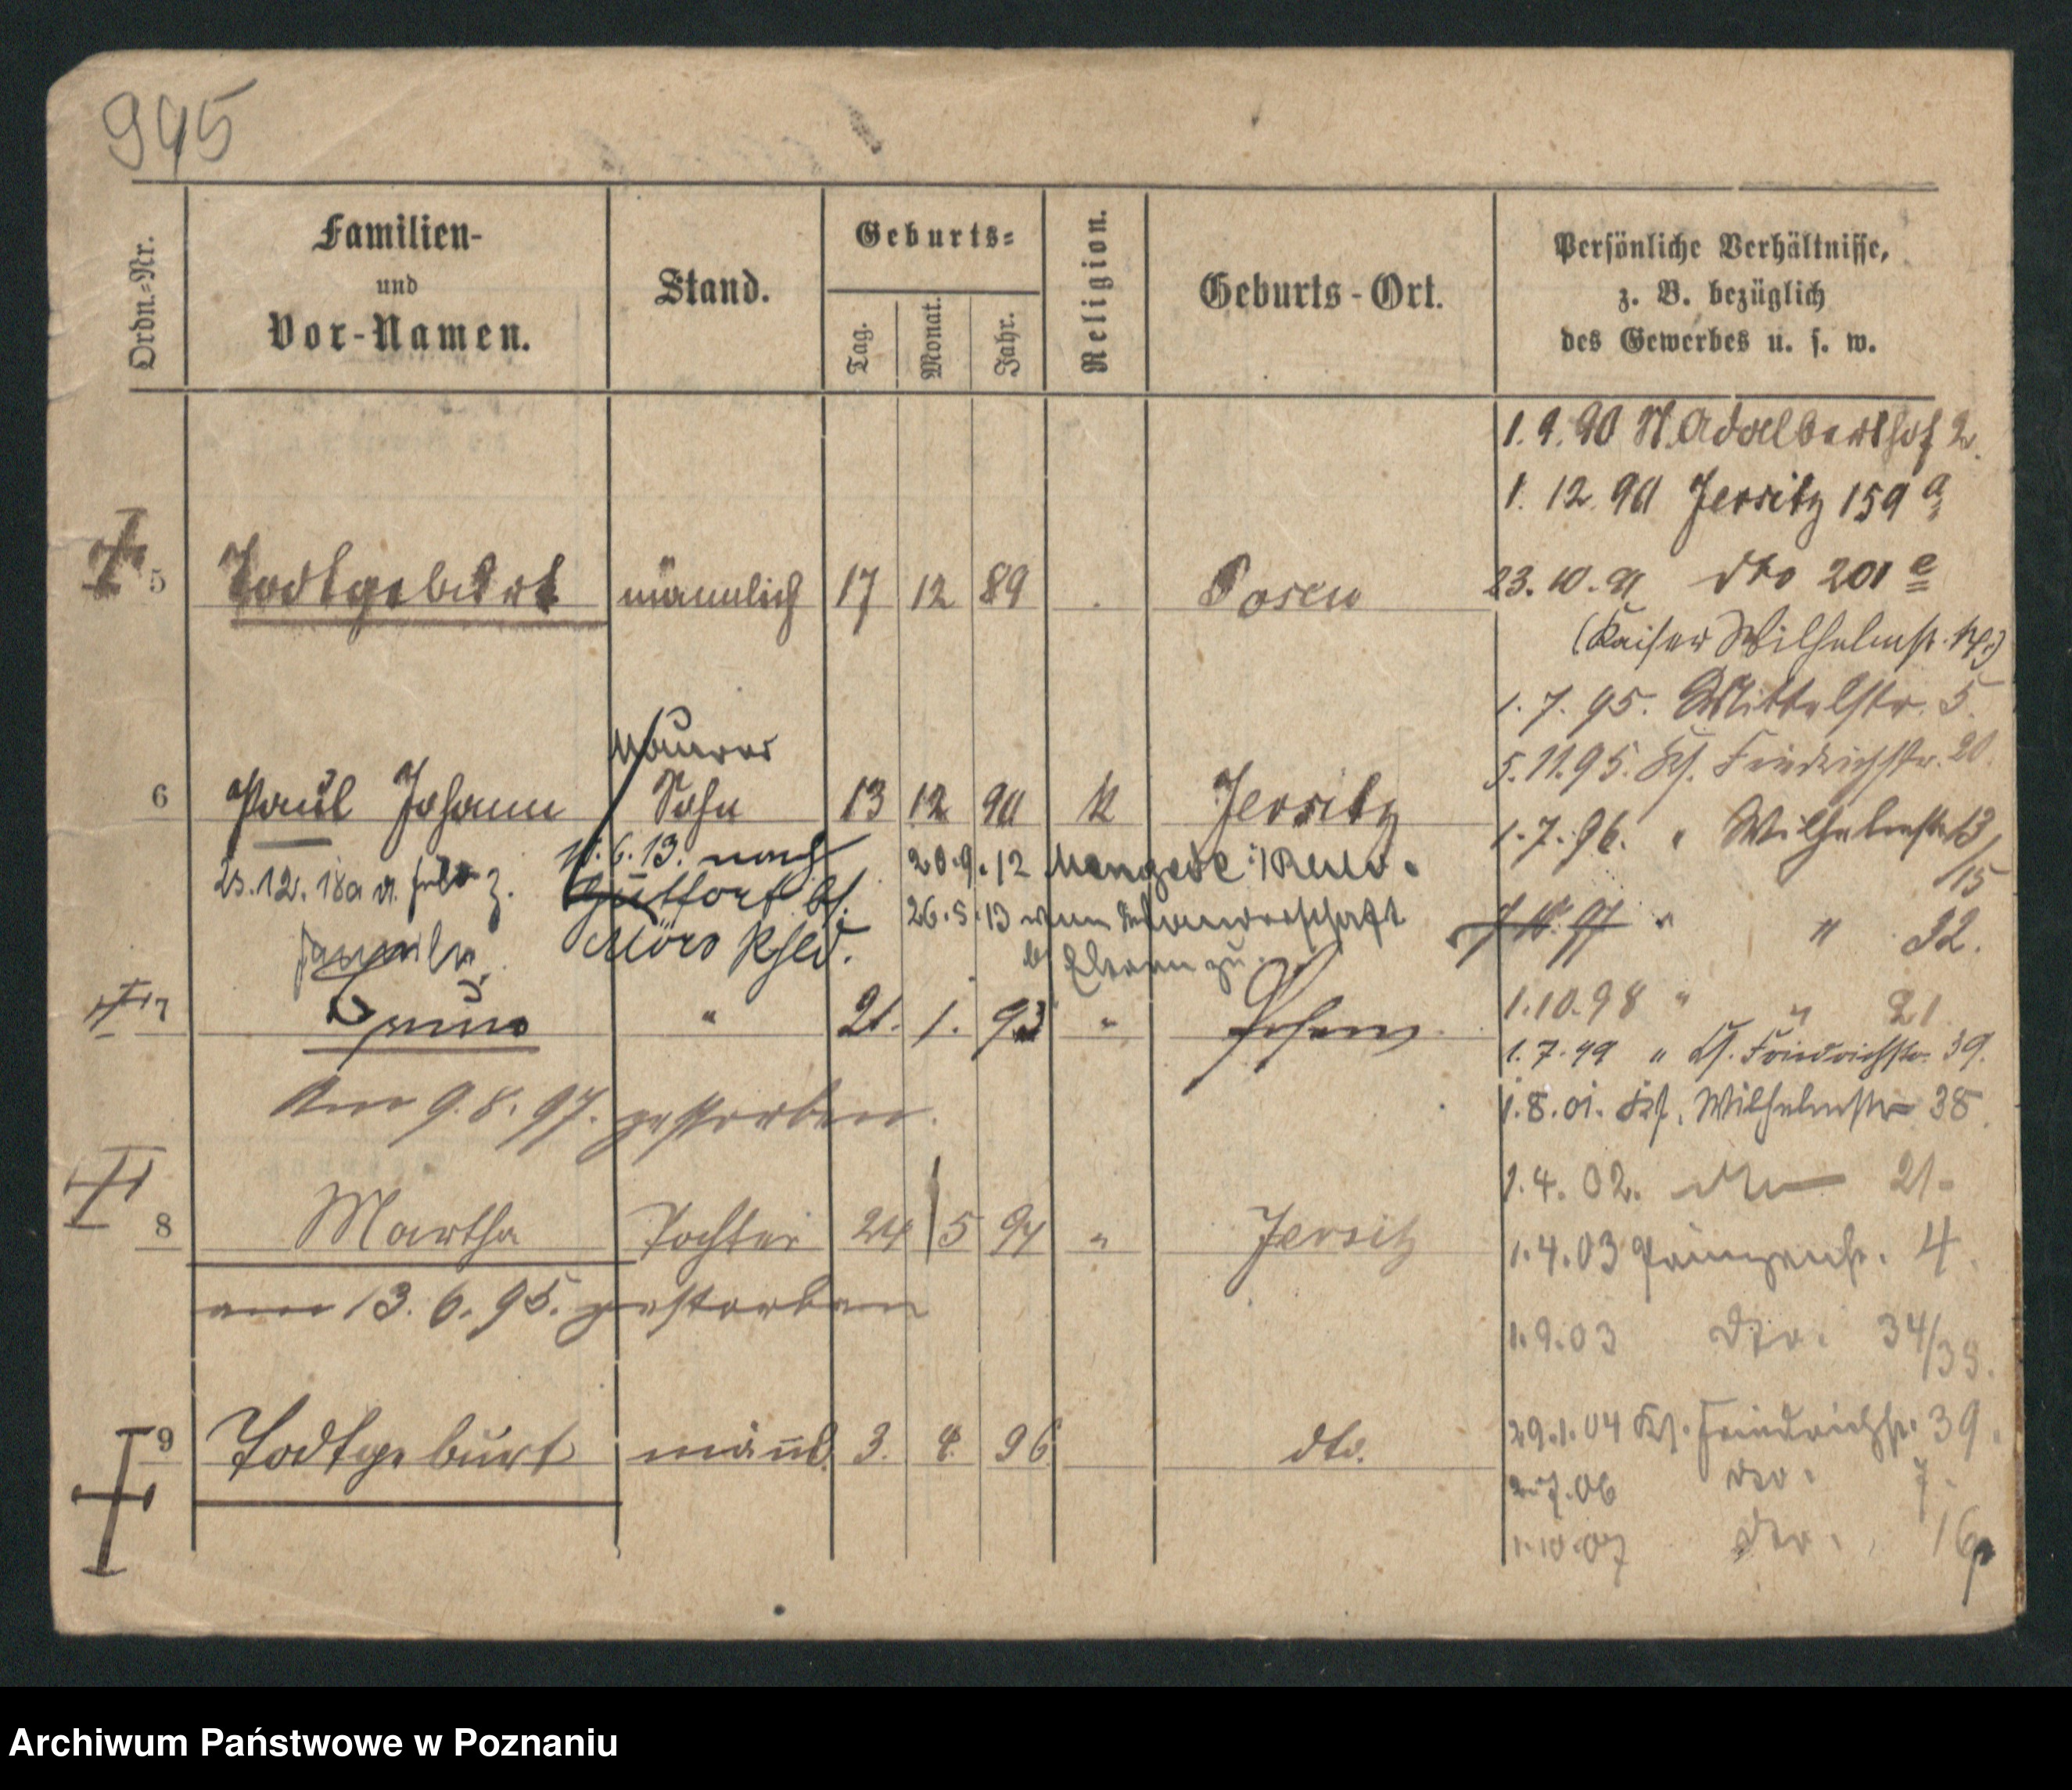 945
Ordn.=Nr.
Familien-
und
Vor-Namen.
Stand.
Geburts=
Tag.
Monat.
Jahr.
Religion.
Geburts-Ort.
Persönliche Verhältnisse,
z. B. bezüglich
des Gewerbes u. s. w.
1.9.90 St. Adalbertshof 2.
1. 12. 90 Jersitz 159 a
5 Todtgeburt männlich 17 12 89 Posen
23.10.91 dto 201 e
(Kaiser Wilhelmstr.
1.7.95. Mittelstr. 5.
Maurer
5.11.95. Ks. Friedrichstr. 20.
6 Paul Johann Sohn 13 12 90 k Jersitz
1.7.96. " Wilhelmstr. 13/15
6.13. nach
20.9.12 Mengede
26.5.13 von Wanderschaft
b Eltern zu.
Mörs
" " 32.
7 Bruno " 21. 1. 93 " Posen
1.10.98 " " 21
1.7.99 " Ks. Friedrichstr. 39.
Am 9.8.97. gestorben.
1.8.01. Ks. Wilhelmstr 38.
1.4.02. dto 21.
8 Martha Tochter 24 5 94 " Jersitz
1.4.03 Prinzenstr. 4.
am 13.6.95. gestorben
1.9.03 dto. 34/35.
9 Todtgeburt männl. 3. 4. 96 dto.
29.1.04 Ks. Friedrichstr. 39.
7.06 dto. 7.
1.10.07 dto. 16
Archiwum Państwowe w Poznaniu